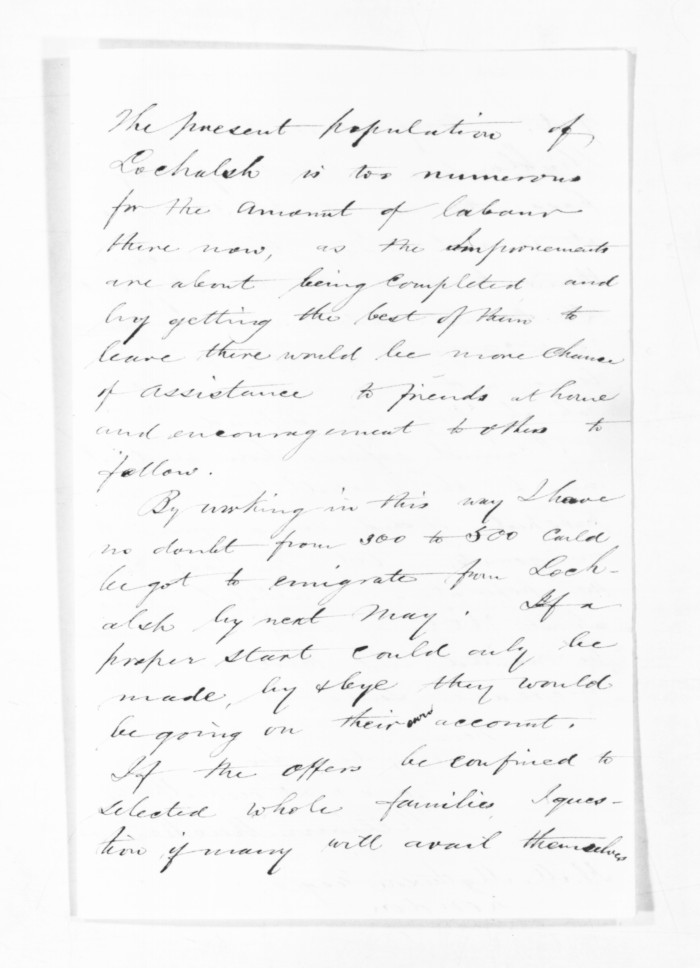 The present population of
Lochalsh is too numerous
for the amount of labour
there now, as the Improvements
are about being completed and
by getting the best of them to
leave there would be more chance
of assistance to friends at home
and encouragement to others to
follow.
By working in this way I have
no doubt from 300 to 500 could
be got to emigrate from Loch-
alsh by next May. If a
proper start could only be
made, by & bye they would
be going on their own account.
If the offers be confined to
selected whole families, I ques-
tion if many will avail themselves